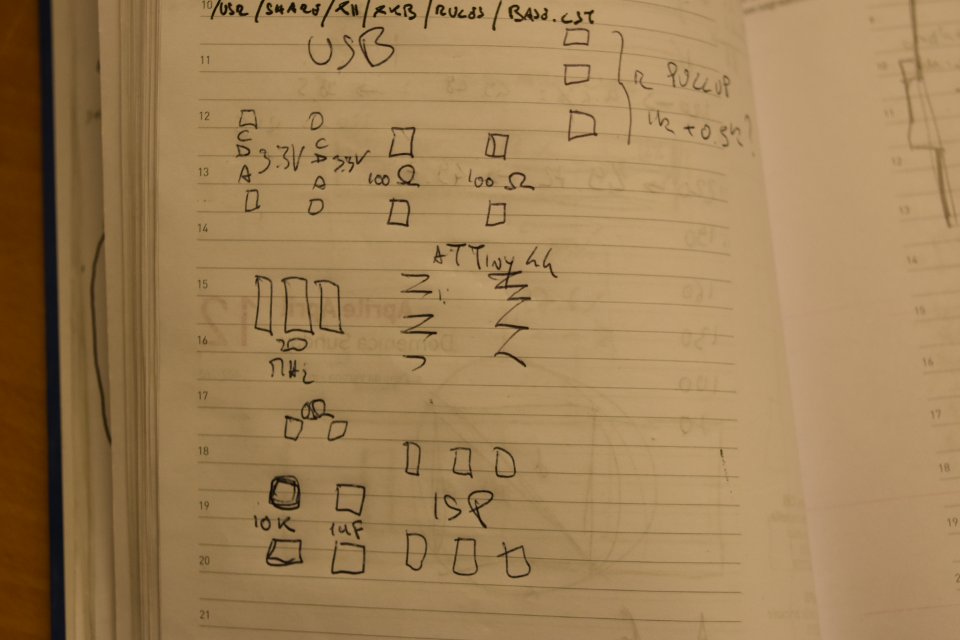 10 /USR/SHARE/X11/XKB/RULES/BASE.LST
USB
11
R PULLUP
1K + 0.5K?
12
C C
D 3.3V D 3.3V
13 A A 100 Ω 100 Ω
14
ATTINY 44
15
1:
16
20
MHz
17
18
19 ISP
10K 1uF
20
21
12 Aprile April
Domenica Sunday
9
10
12
13
15
16
17
18
19